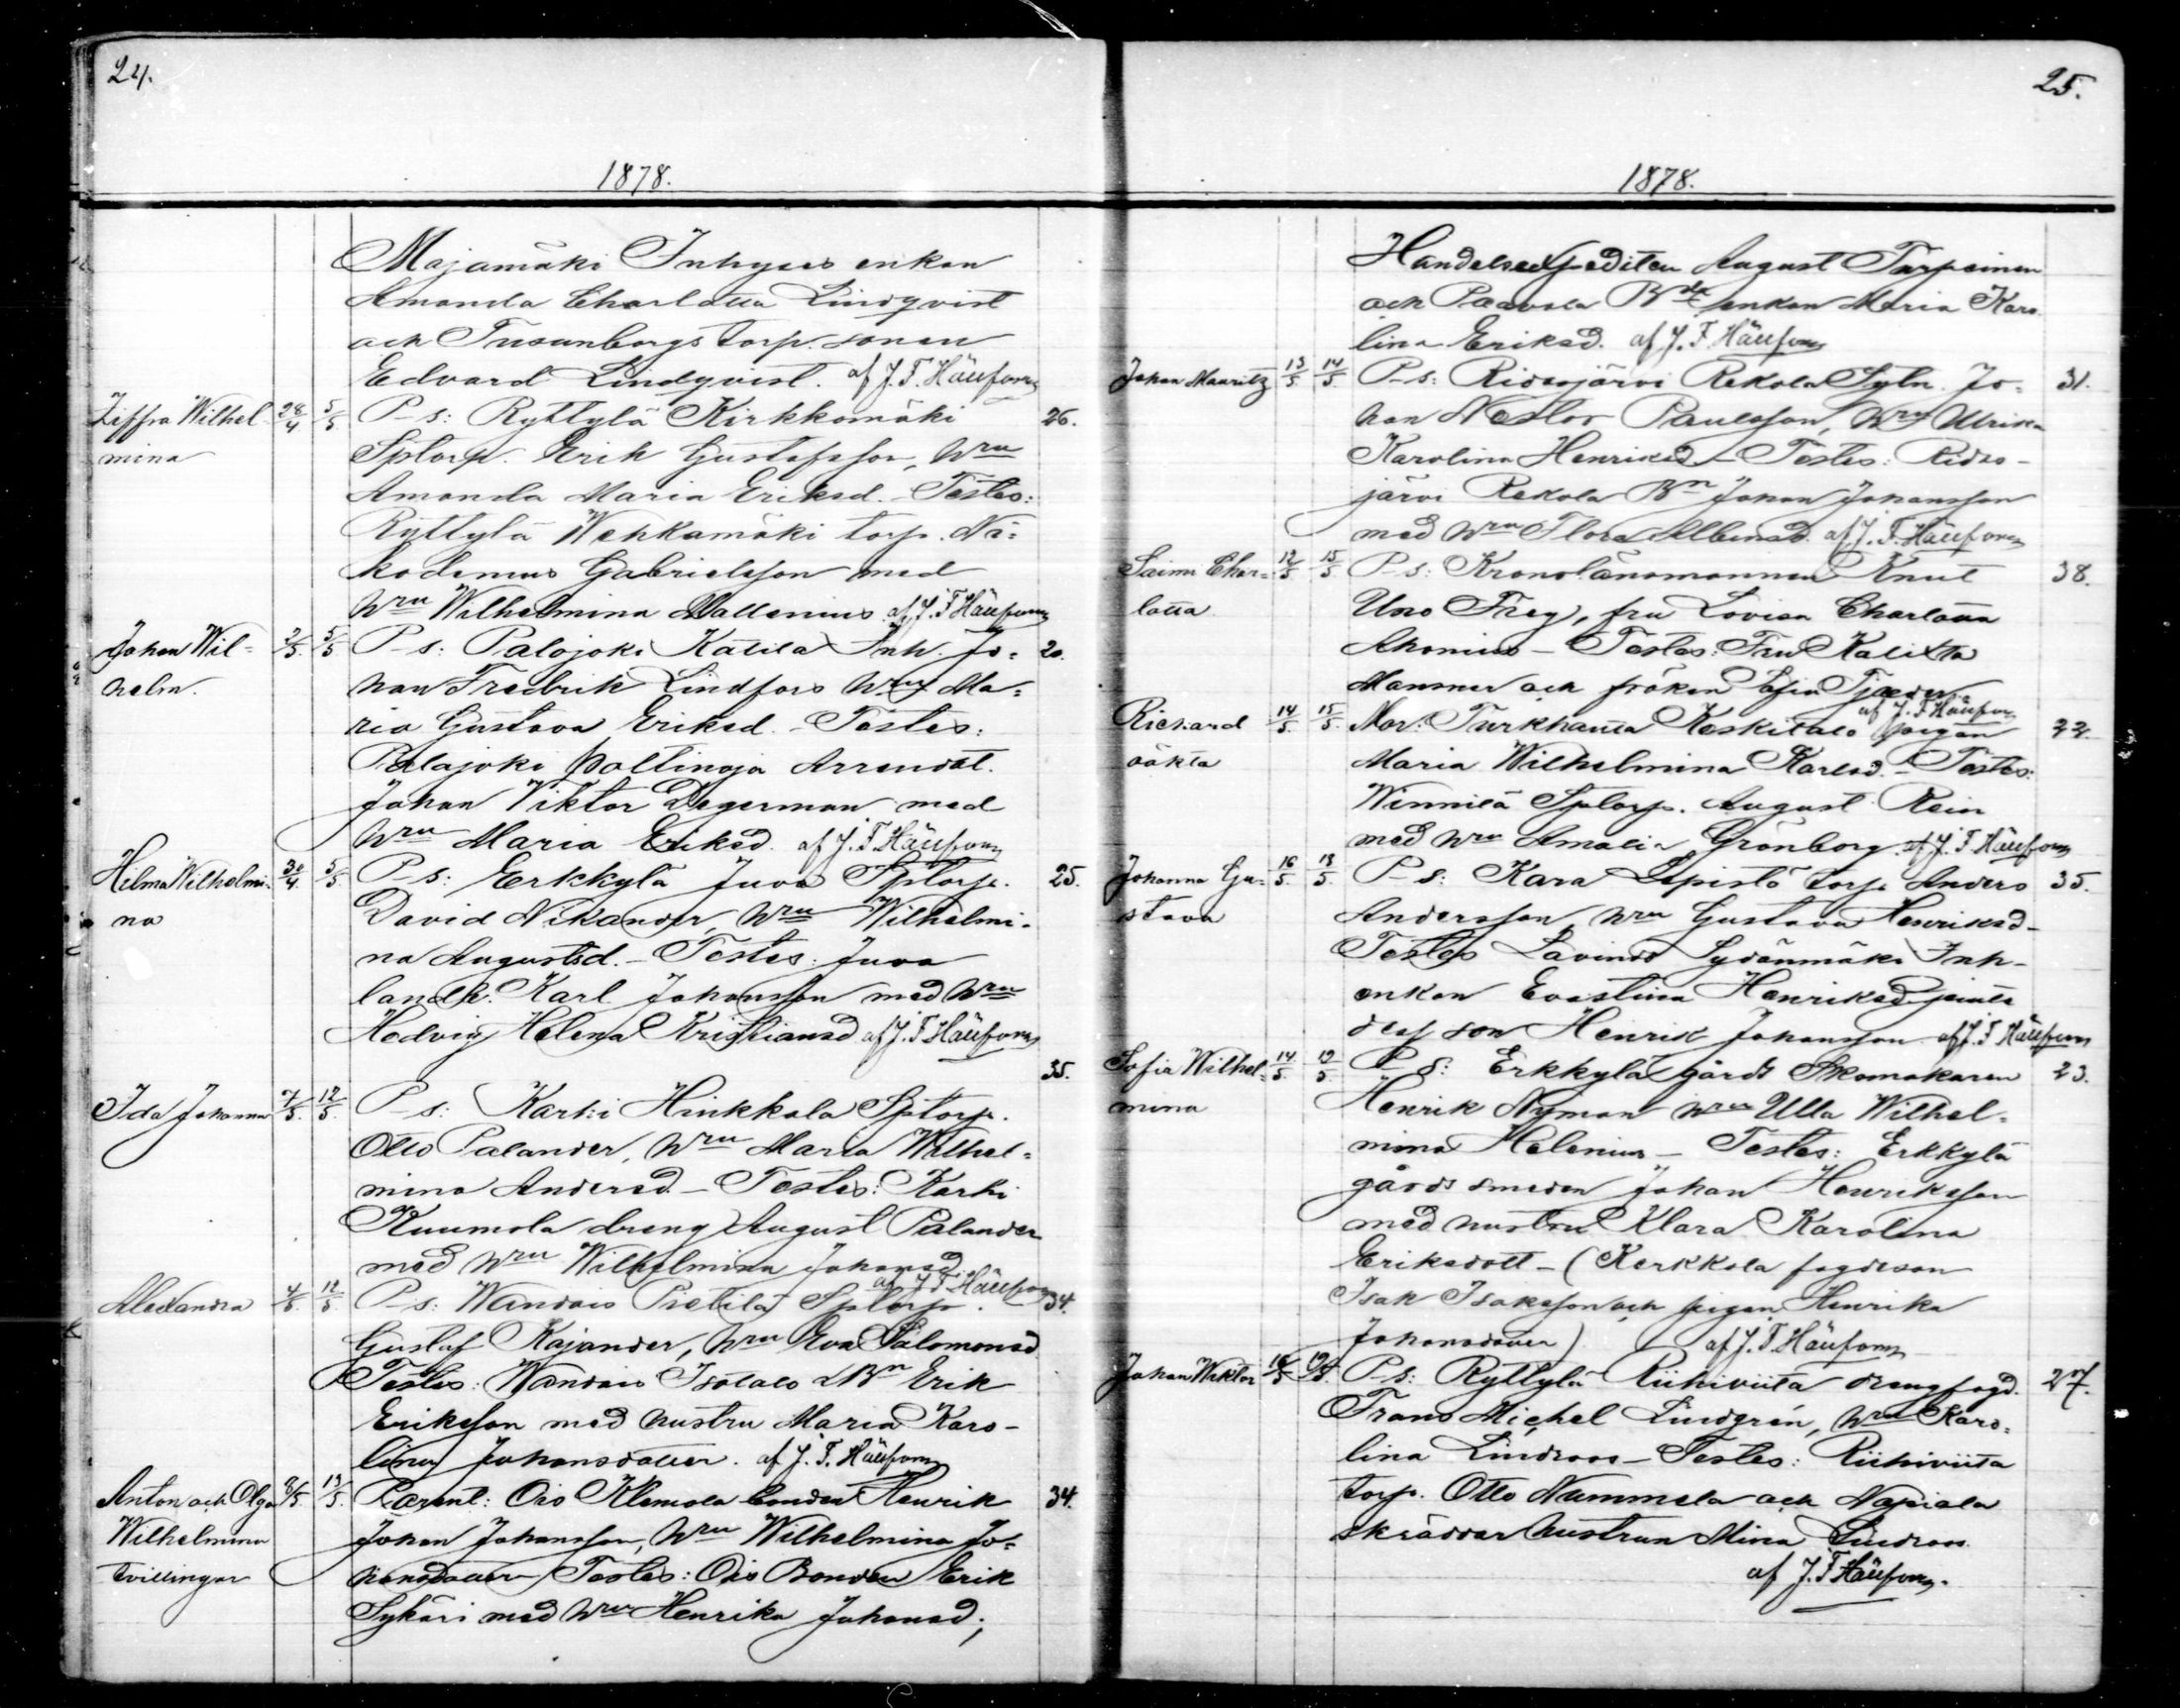 24.
1878.
Majamäki Inhyses enkan
Amanda Charlotta Lindqvist
och Tusanborgs torp. sonen
Edvard Lindqvist. af J. F.
Ziffra Wilhel- 28/4 5/5 P-s: Ryttylä Kirkkomäki 26.
mina Sptorp. Erik Gustafsson, Hru
Amanda Maria Eriksd. - Testes:
Ryttylä Wehkamäki torp. Ni-
kodemus Gabrielsson med
Hru Wilhelmina Wallenius af J. F.
Johan Wil- 2/5 5/5 P-s: Palojoki Katila Inh. Jo- 20.
helm. han Fredrik Lindfors Hru Ma-
ria Gustava Eriksd. - Testes:
Palajoki Poltinoja Arrendat.
Johan Viktor Degerman med
Hru Maria Eriksd. af J. F.
Hilma Wilhelmi- 30/4 5/5 P-s: Erkkylä Juva Sptorp. 25.
na David Nikander, Hru Wilhelmi-
na Augustsd. - Testes: Juva
landb. Karl Johansson med Hru
Hedvig Helena Kristiansd af J. F.
35.
Ida Johanna 7/5 12/5 P-s: Karhi Hinkkala Sptorp.
Otto Palander, Hru Maria Wilhel-
mina Andersd. - Testes: Karhi
Kuumola dreng August Palander
med Hru Wilhelmina Johansd
af J. F.
Alexandra 4/5 12/5 P-s: Wandais Pietilä Sptorp. 34.
Gustaf Kajander, Hru Eva Salomonsd
Testes: Wandais Isotalo Bn Erik
Eriksson med hustru Maria Karo-
lina Johansdotter. af J. F.
Anton och Olga 8/5 13/5 Parent: Ois Klemola bonden Henrik 34.
Wilhelmina Johan Johansson, Hru Wilhelmina Jo-
tvillingar hansdotter Testes: Ois Bonden Erik
Sykäri med Hru Henrika Johansd;
25.
1878.
Handelsexpediten August Turpeinen
och Paavola Bde enkan Maria Karo-
lina Eriksd. af J. F.
Johan Mauritz 13/5 14/5 P-s: Ridasjärvi Rekola Sytn. Jo- 31.
han Nestor Paulsson, Hru Ulrika
Karolina Henriksd - Testes: Ridas-
järvi Rekola Bn Johan Johansson
med Hru Flora Albinsd. af J. F.
Saima Char- 12/5 15/5 P-s: Kronolänsmannen Knut 38.
lotta Uno Frey, fru Lovisa Charlotta
Ahonius - Testes: Fru Kalixta
Mansner och fröken Sofia
af J. F.
Richard 14/5 15/5 Mor: Turkhauta Koskitalo pigan 22.
oäkta Maria Wilhelmina Karlsd. - Testes:
Winnilä Sptorp. August Rein
med Hru Amalia Grönborg. af J. F.
Johanna Gu- 16/5 18/5 P-s: Kara Lepistö torp. Anders 35.
stava Andersson, Hru Gustava Henriksd -
Testes Lavinto Sydänmäki Inh-
enkan Evastina Henriksd jemte
dess son Henrik Johansson af J. F.
Sofia Wilhel- 14/5 19/5 P-s: Erkkylä gårds Skomakaren 23.
mina Henrik Nyman Hru Ulla Wilhel-
mina Helenius - Testes: Erkkylä
gårds smeden Johan Henriksson
med hustru Klara Karolina
Eriksdott - (Kerkkola fogdeson
Isak Isaksson och pigan Henrika
Johansdotter) af J. F.
Johan Wiktor 16/5 19/5 P-s: Ryttylä Riihiviita drengfogd. 27.
Frans Michel Lindgrén, Hru Karo-
lina Lindroos - Testes: Riihiviita
torp. Otto Nummela och Napiala
skräddar hustrun Mina Lindroos
af J. F.